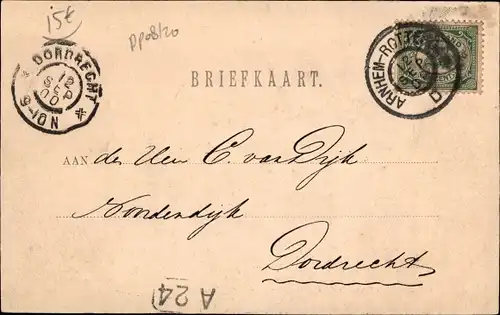 15€
DP08/20
DORDRECHT
12
SEP
00
9-10N
ARNHEM-ROTT
D
BRIEFKAART.
AAN den Heer C. van Dijk
Noordendijk
Dordrecht
A 24